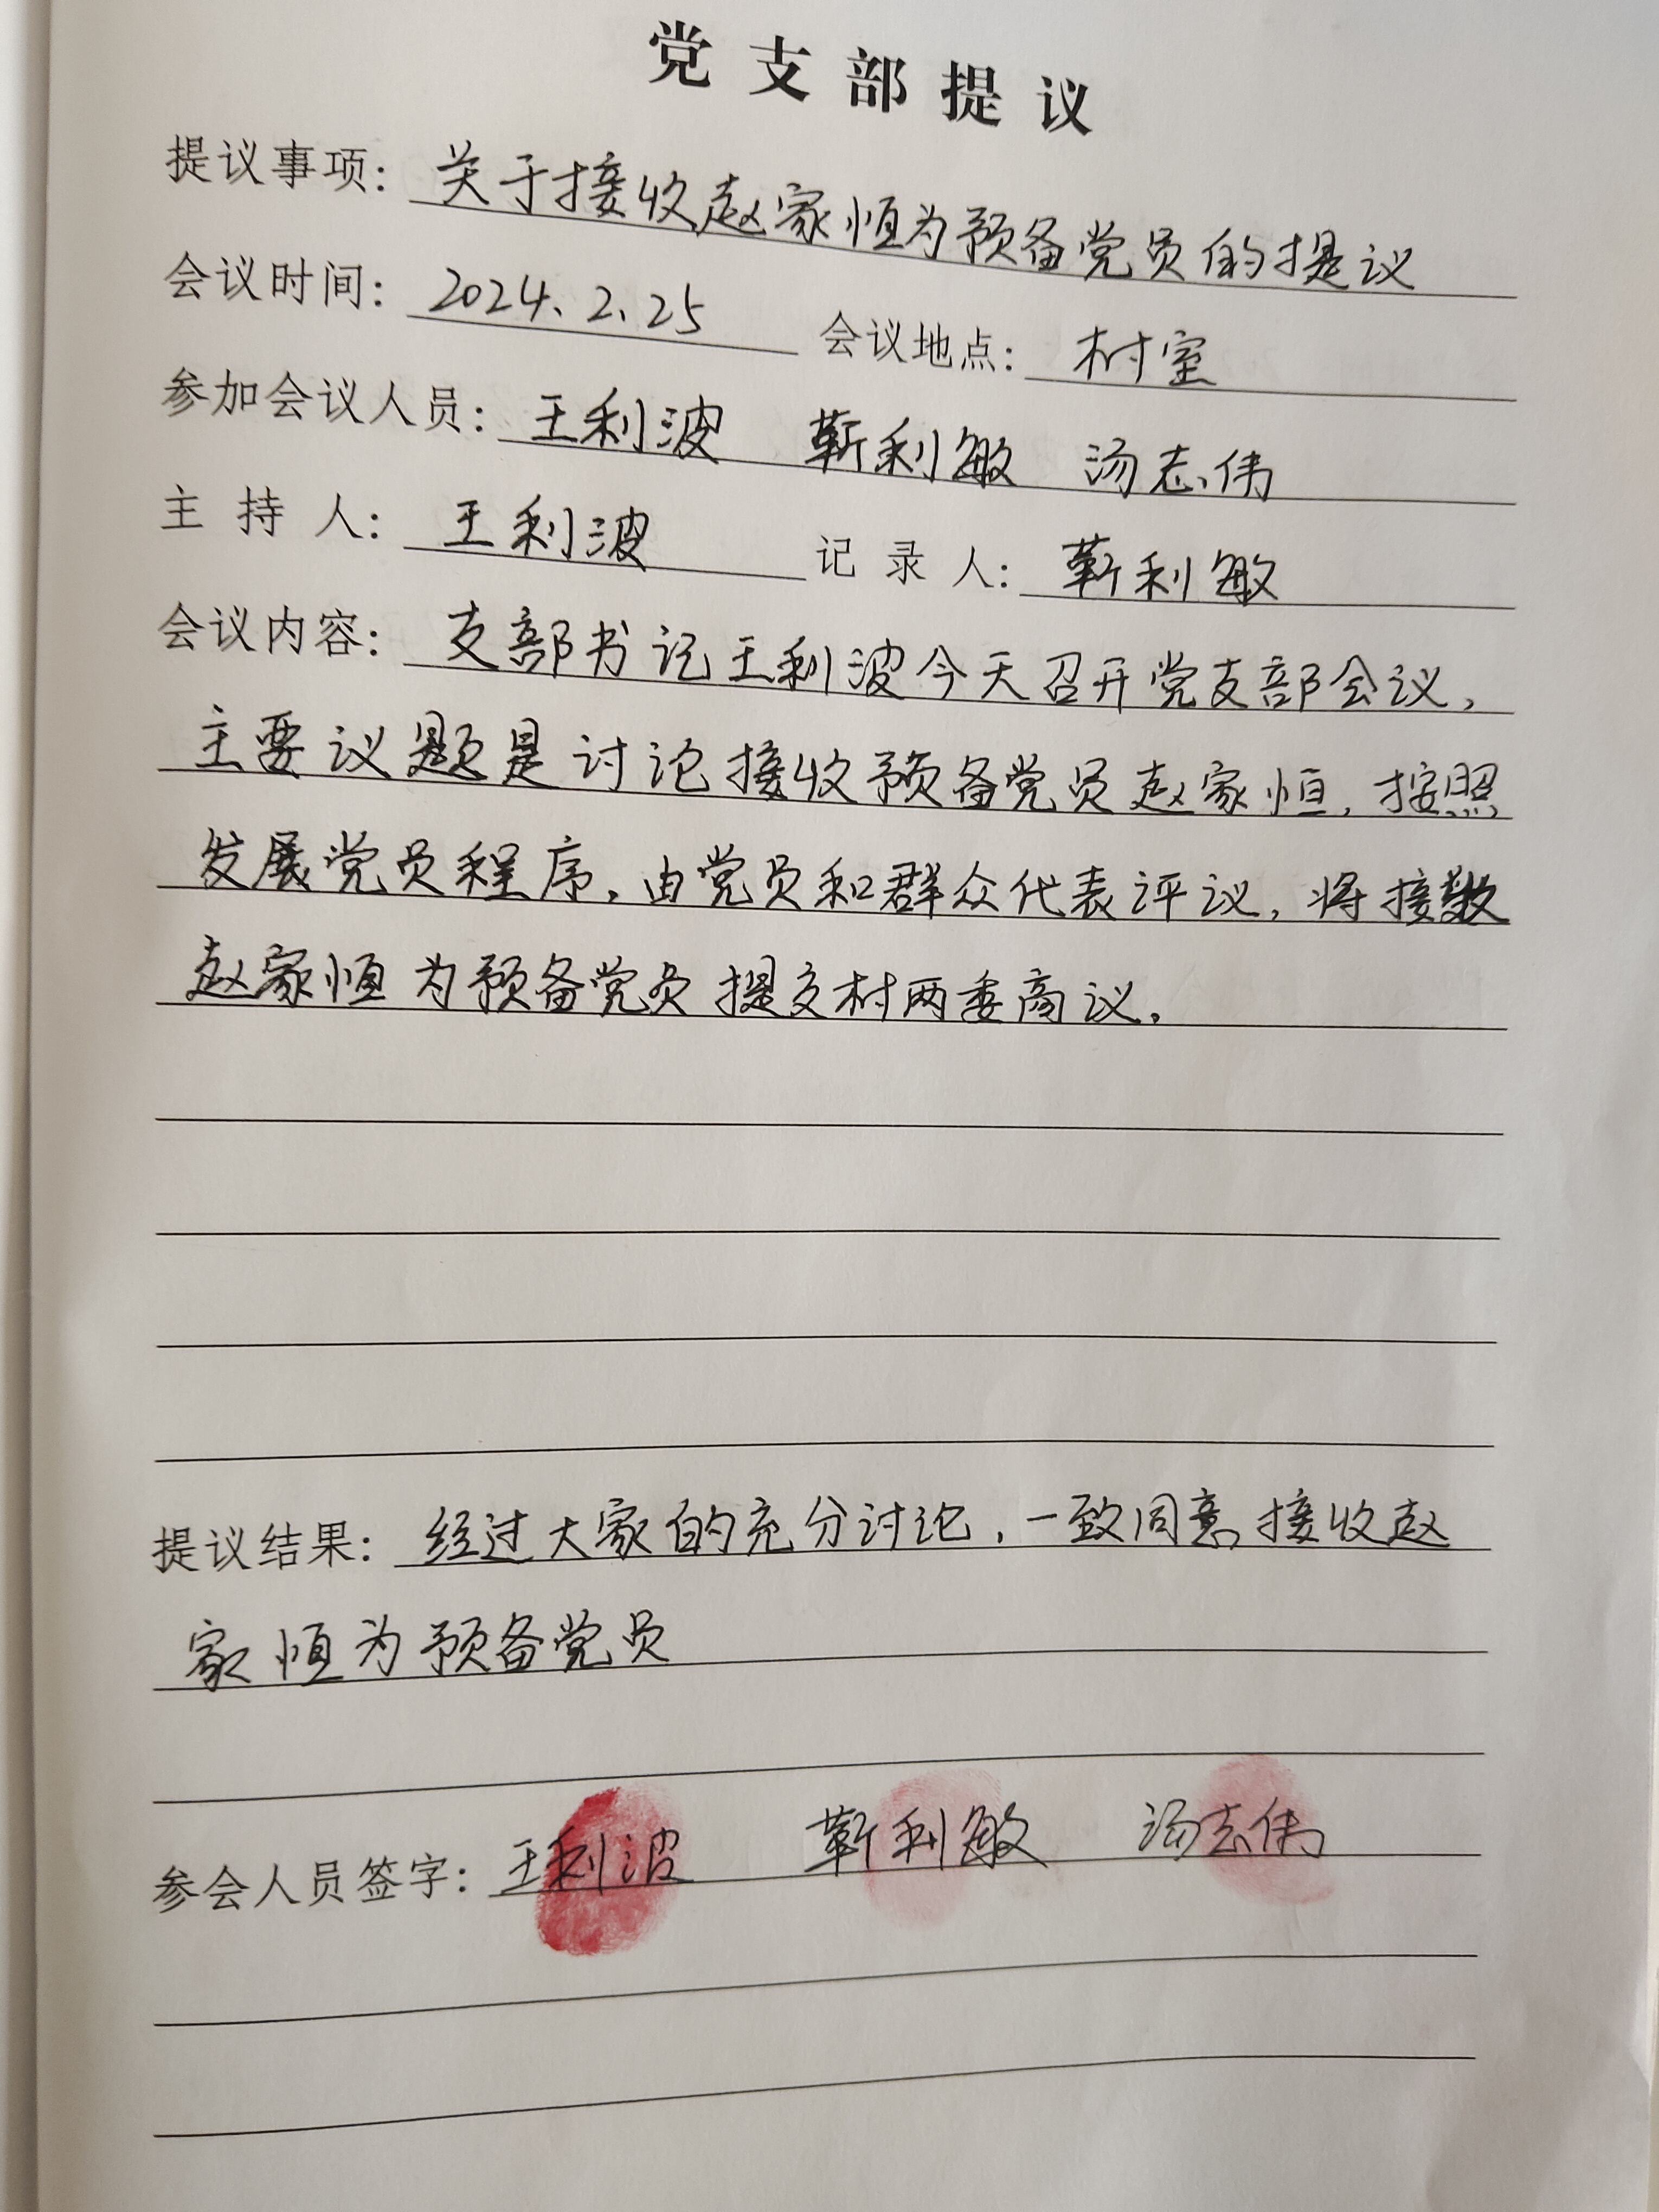 党支部提议
提议事项: 关于接收赵家恒为预备党员的提议
会议时间: 2024.2.25 会议地点: 村室
参加会议人员: 王利波 靳利敏 汤志伟
主持人: 王利波 记录人: 靳利敏
会议内容: 支部书记王利波今天召开党支部会议,
主要议题是讨论接收预备党员赵家恒,按照
发展党员程序,由党员和群众代表评议,将接
赵家恒为预备党员提交村两委商议。
提议结果: 经过大家的充分讨论,一致同意接收赵
家恒为预备党员
参会人员签字: 王利波 靳利敏 汤志伟